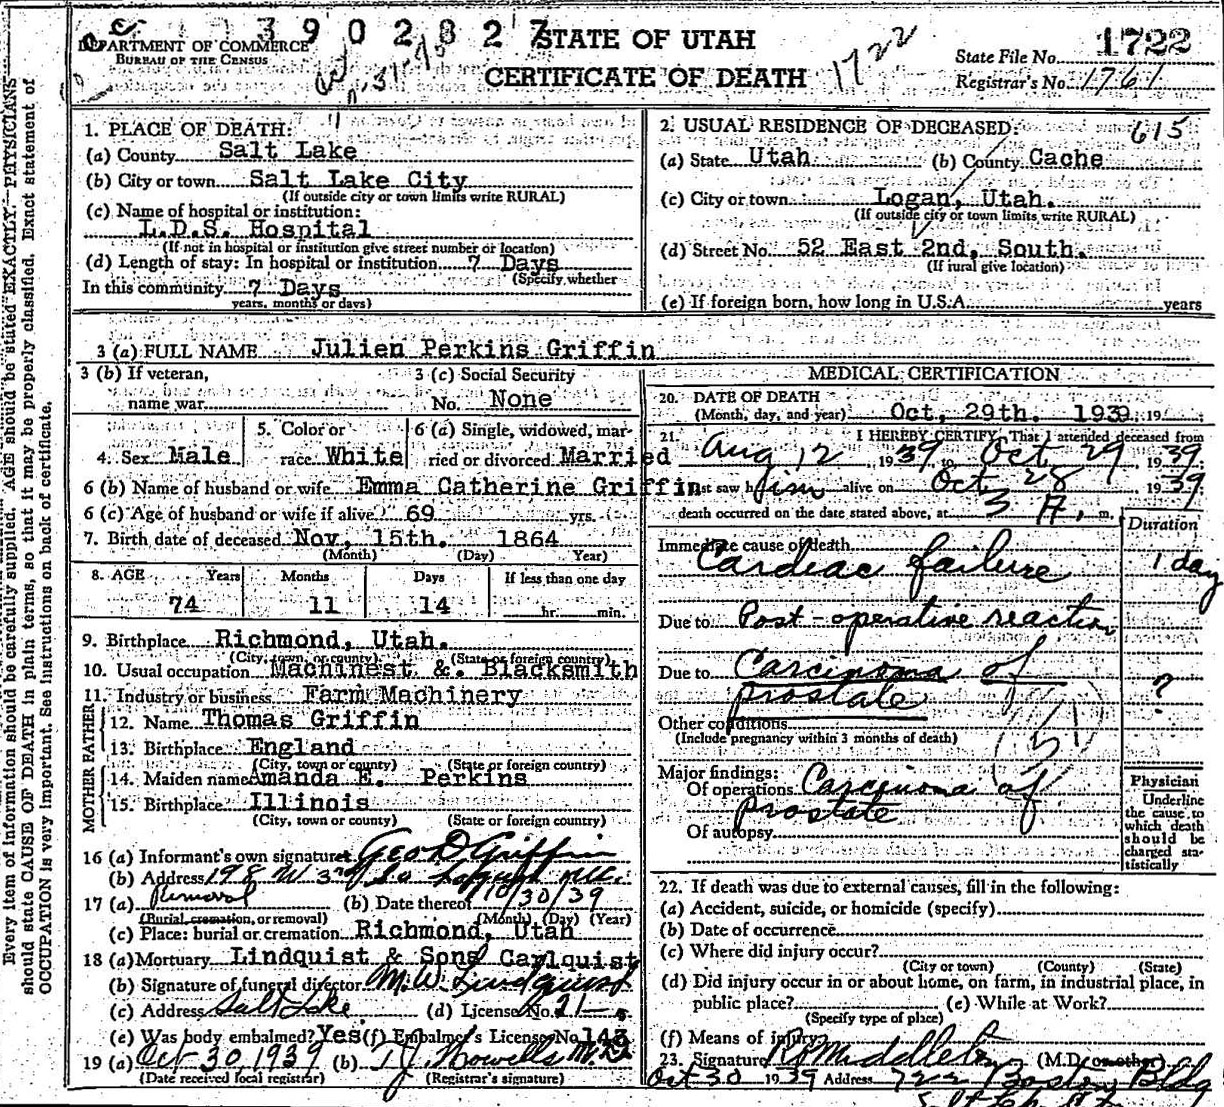 3902827
DEPARTMENT OF COMMERCE
BUREAU OF THE CENSUS
STATE OF UTAH
CERTIFICATE OF DEATH
1722
State File No. 1722
Registrar's No. 1761
Every item of information should be carefully supplied. AGE should be stated EXACTLY. PHYSICIANS
should state CAUSE OF DEATH in plain terms, so that it may be properly classified. Exact statement of
OCCUPATION is very important. See instructions on back of certificate.
1. PLACE OF DEATH:
(a) County Salt Lake
(b) City or town Salt Lake City
(If outside city or town limits write RURAL)
(c) Name of hospital or institution:
L.D.S. Hospital
(If not in hospital or institution give street number or location)
(d) Length of stay: In hospital or institution 7 Days
(Specify whether
In this community 7 Days
years, months or days)
2. USUAL RESIDENCE OF DECEASED: 615
(a) State Utah (b) County Cache
(c) City or town Logan, Utah.
(If outside city or town limits write RURAL)
(d) Street No. 52 East 2nd, South.
(If rural give location)
(e) If foreign born, how long in U.S.A. years
3 (a) FULL NAME Julien Perkins Griffin
3 (b) If veteran,
name war
3 (c) Social Security
No. None
4. Sex Male
5. Color or
race White
6 (a) Single, widowed, mar-
ried or divorced Married
6 (b) Name of husband or wife Emma Catherine Griffin
6 (c) Age of husband or wife if alive 69 yrs.
7. Birth date of deceased Nov, 15th. 1864
(Month) (Day) Year)
8. AGE Years Months Days If less than one day
74 11 14 hr. min.
9. Birthplace Richmond, Utah.
(City, town, or county) (State or foreign country)
10. Usual occupation Machinest &. Blacksmith
11. Industry or business Farm Machinery
FATHER
12. Name Thomas Griffin
13. Birthplace England
(City, town or county) (State or foreign country)
MOTHER
14. Maiden name Amanda E. Perkins
15. Birthplace Illinois
(City, town or county) (State or foreign country)
16 (a) Informant's own signature Geo D Griffin
(b) Address 198 W 3rd So
17 (a) Removal (b) Date thereof 10/30/39
(Burial, cremation, or removal) (Month) (Day) (Year)
(c) Place: burial or cremation Richmond, Utah
18 (a) Mortuary Lindquist & Sons Carlquist
(b) Signature of funeral director M. W. Lindquist
(c) Address Salt Lake (d) License No. 21
(e) Was body embalmed? Yes (f) Embalmer's License No. 143
19 (a) Oct 30, 1939 (b) T J Howells M.D.
(Date received local registrar) (Registrar's signature)
MEDICAL CERTIFICATION
20. DATE OF DEATH
(Month, day, and year) Oct, 29th. 1939 19
21. I HEREBY CERTIFY, That I attended deceased from
Aug 12 1939 to Oct 29 1939
last saw him alive on Oct 28 1939
death occurred on the date stated above, at 3 A. m.
Duration
Immediate cause of death
Cardiac failure 1 day
Due to Post-operative reaction
Due to Carcinoma of
prostate ?
Other conditions
(Include pregnancy within 3 months of death)
51
Major findings:
Of operations Carcinoma of
prostate
Of autopsy
Physician
Underline
the cause to
which death
should be
charged sta-
tistically
22. If death was due to external causes, fill in the following:
(a) Accident, suicide, or homicide (specify)
(b) Date of occurrence
(c) Where did injury occur?
(City or town) (County) (State)
(d) Did injury occur in or about home, on farm, in industrial place, in
public place? (e) While at Work?
(Specify type of place)
(f) Means of injury?
23. Signature Middleton (M.D. or other)
Oct 30 1939 Address 722 Boston Bldg